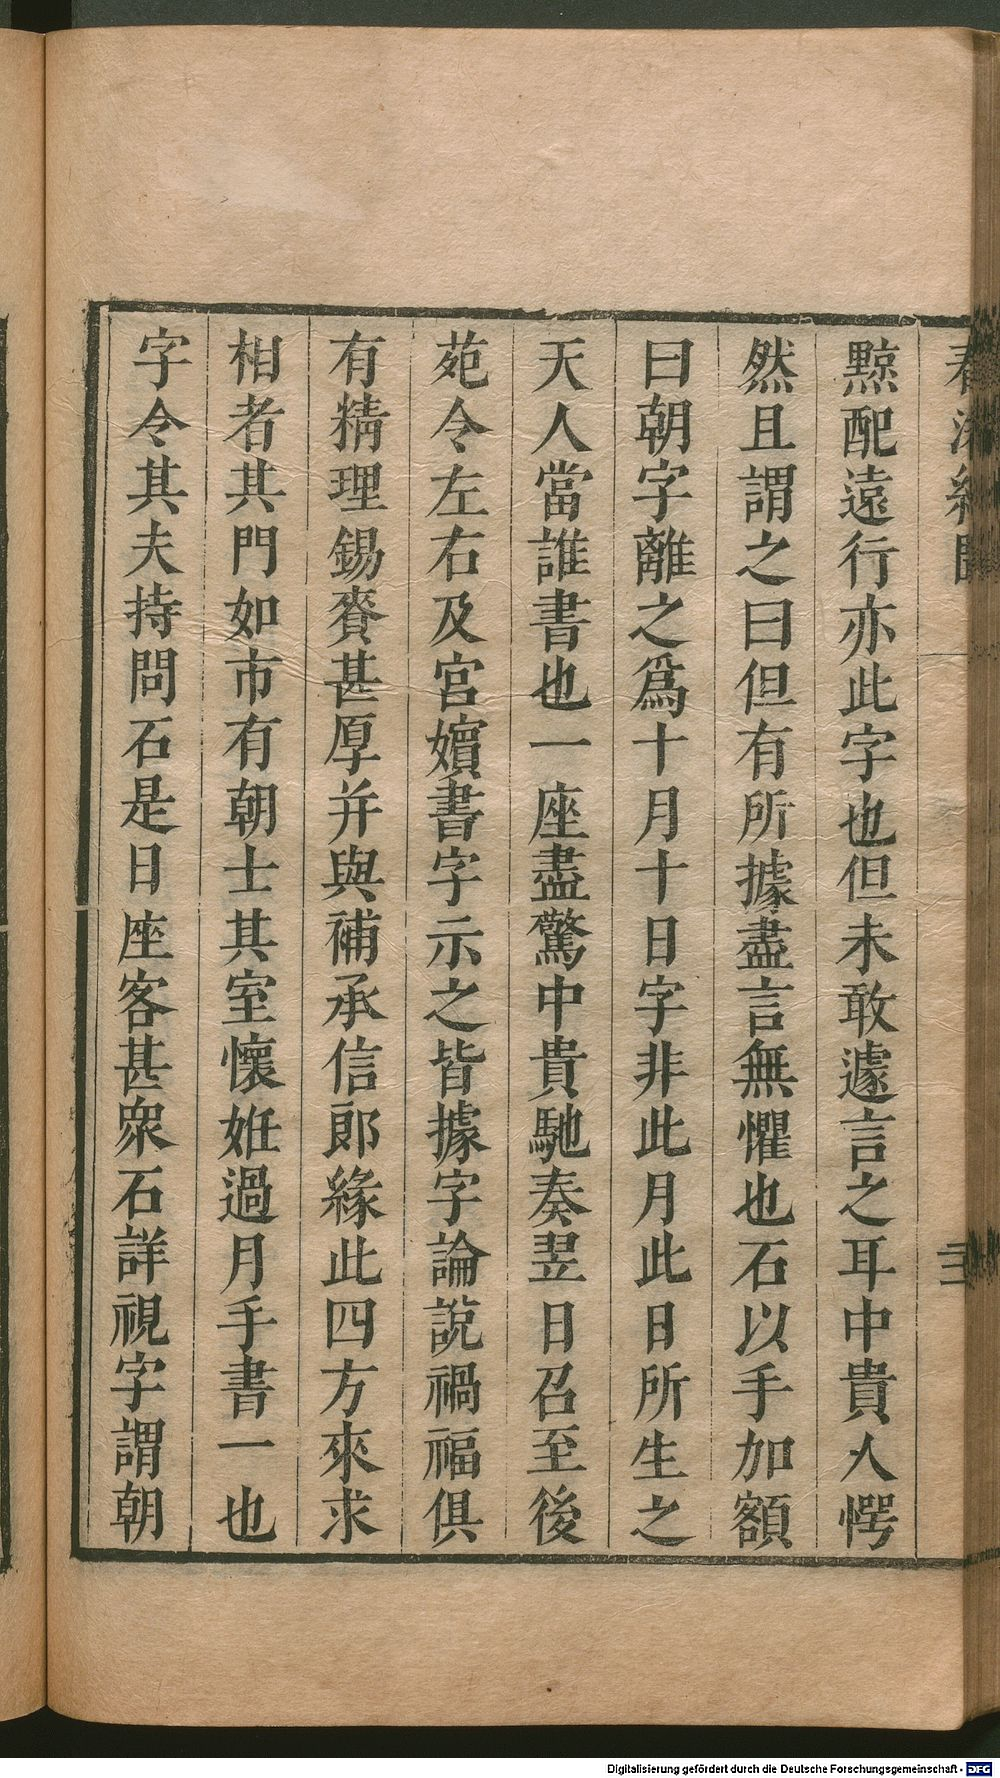 黥配遠行亦此字也但未敢遽言之耳中貴人愕
然且謂之曰但有所據盡言無懼也石以手加額
曰朝字離之爲十月十日字非此月此日所生之
天人當誰書也一座盡驚中貴馳奏翌日召至後
苑令左右及宮嬪書字示之皆據字論說禍福俱
有精理錫賚甚厚并與補承信郎緣此四方來求
相者其門如市有朝士其室懷姙過月手書一也
字令其夫持問石是日座客甚衆石詳視字謂朝
Digitalisierung gefördert durch die Deutsche Forschungsgemeinschaft - DFG